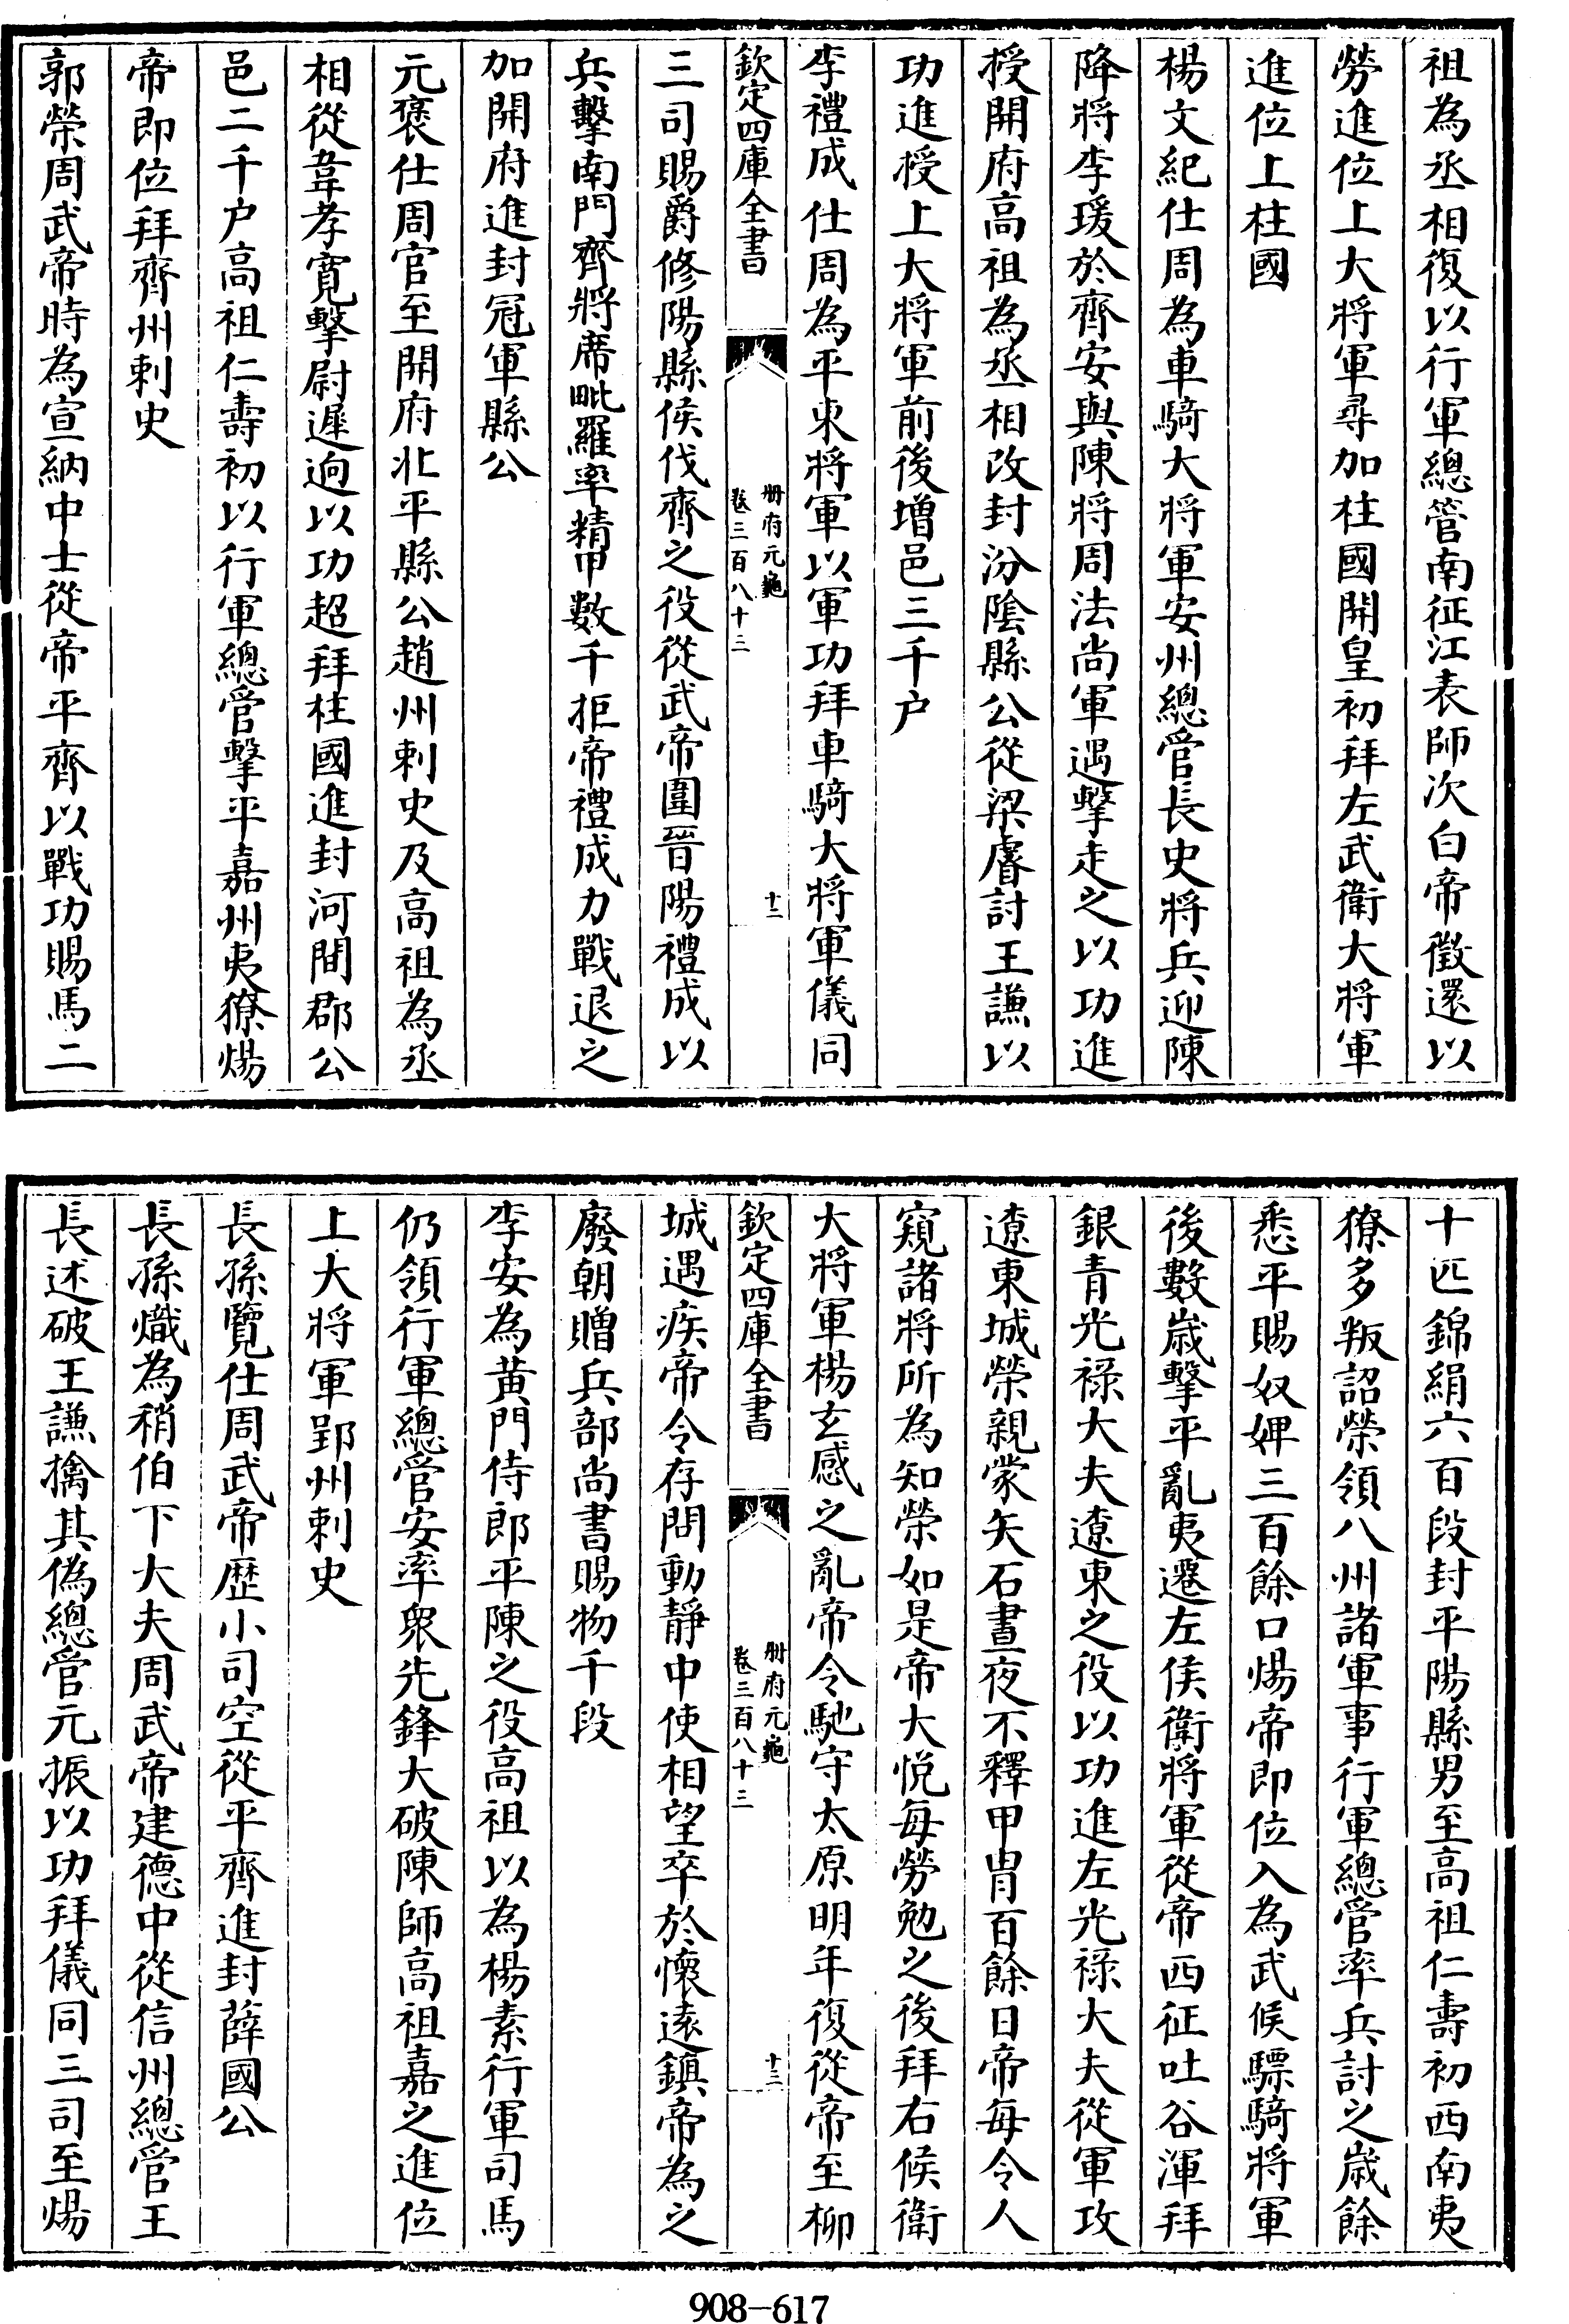 祖為丞相復以行軍總管南征江表師次白帝徵還以
勞進位上大將軍尋加柱國開皇初拜左武衛大將軍
進位上柱國
楊文紀仕周為車騎大將軍安州總管長史將兵迎陳
降將李瑗於齊安與陳將周法尚軍遇擊走之以功進
授開府高祖為丞相改封汾陰縣公從梁睿討王謙以
功進授上大將軍前後增邑三千户
李禮成仕周為平東將軍以軍功拜車騎大將軍儀同
欽定四庫全書
冊府元龜
卷三百八十三
十二
三司賜爵修陽縣侯伐齊之役從武帝圍晉陽禮成以
兵擊南門齊將席毗羅率精甲數千拒帝禮成力戰退之
加開府進封冠軍縣公
元褒仕周官至開府北平縣公趙州刺史及高祖為丞
相從韋孝寛擊尉遲迥以功超拜柱國進封河間郡公
邑二千户高祖仁壽初以行軍總管擊平嘉州夷獠煬
帝即位拜齊州刺史
郭榮周武帝時為宣納中士從帝平齊以戰功賜馬二
十匹錦絹六百段封平陽縣男至高祖仁壽初西南夷
獠多叛詔榮領八州諸軍事行軍總管率兵討之歲餘
悉平賜奴婢三百餘口煬帝即位入為武候驃騎將軍
後數歲擊平亂夷遷左侯衛將軍從帝西征吐谷渾拜
銀青光禄大夫遼東之役以功進左光禄大夫從軍攻
遼東城榮親蒙矢石晝夜不釋甲冑百餘日帝每令人
窺諸將所為知榮如是帝大悦每勞勉之後拜右候衛
大將軍楊玄感之亂帝令馳守太原明年復從帝至柳
欽定四庫全書
冊府元龜
卷三百八十三
十三
城遇疾帝令存問動靜中使相望卒於懷遠鎮帝為之
廢朝贈兵部尚書賜物千段
李安為黄門侍郎平陳之役高祖以為楊素行軍司馬
仍領行軍總管安率衆先鋒大破陳師高祖嘉之進位
上大將軍郢州刺史
長孫覽仕周武帝歷小司空從平齊進封薛國公
長孫熾為稍伯下大夫周武帝建德中從信州總管王
長述破王謙擒其偽總管元振以功拜儀同三司至煬
908-617